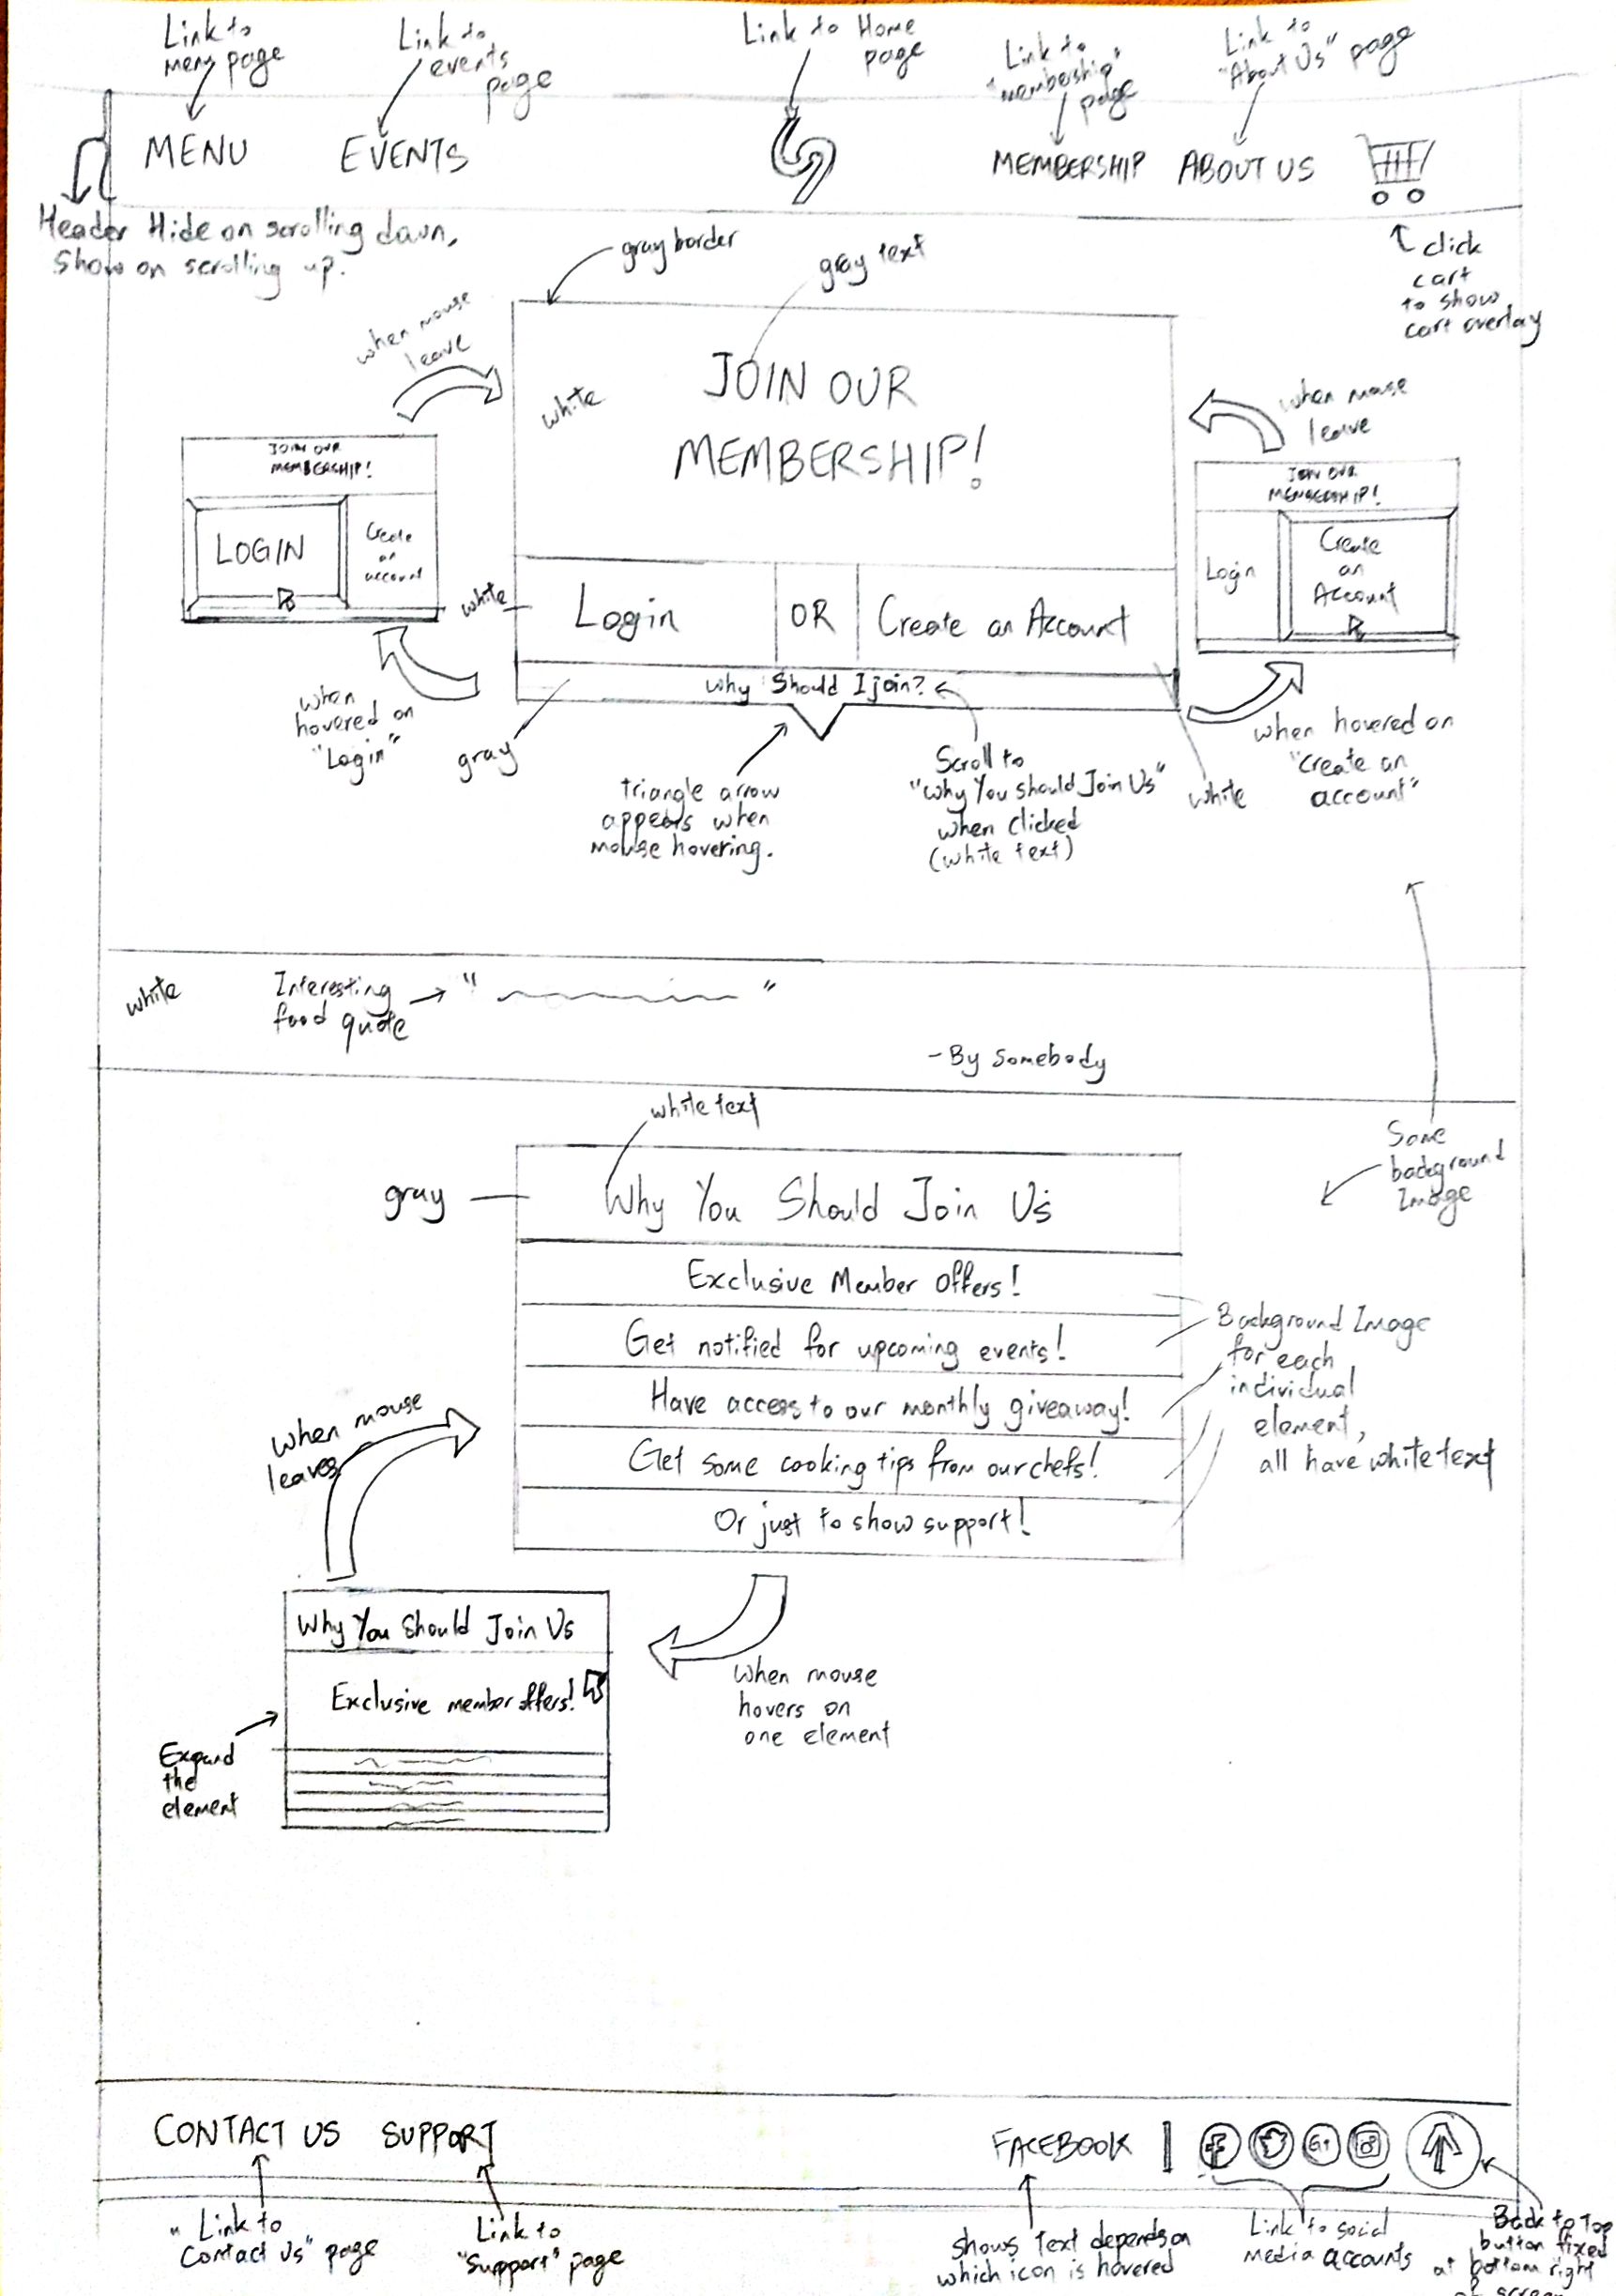 Link to
menu page
Link to
events
page
Link to Home
page
Link to
"membership"
page
Link to
"About Us" page
MENU
EVENTS
MEMBERSHIP
ABOUT US
Header Hide on scrolling down,
Show on scrolling up.
click
cart
to show
cart overlay
gray border
gray text
when mouse
leave
white
JOIN OUR
MEMBERSHIP!
when mouse
leave
JOIN OUR
MEMBERSHIP!
LOGIN
Create
an
account
JOIN OUR
MEMBERSHIP!
Login
Create
an
Account
white
Login
OR
Create an Account
why Should I join?
when
hovered on
"Login"
gray
triangle arrow
appears when
mouse hovering.
Scroll to
"Why You should Join Us"
when clicked
(white text)
white
when hovered on
"create an
account"
white
Interesting
food quote
" "
- By somebody
white text
Some
background
Image
gray
Why You Should Join Us
Exclusive Member Offers!
Get notified for upcoming events!
Have access to our monthly giveaway!
Get some cooking tips from our chefs!
Or just to show support!
Background Image
for each
individual
element,
all have white text
when mouse
leaves
Why You Should Join Us
Exclusive member offers!
when mouse
hovers on
one element
Expand
the
element
CONTACT US
SUPPORT
FACEBOOK
f
G+
"Link to
Contact Us" page
Link to
"Support" page
shows text depends on
which icon is hovered
Link to social
media accounts
Back to Top
button fixed
at bottom right
of screen